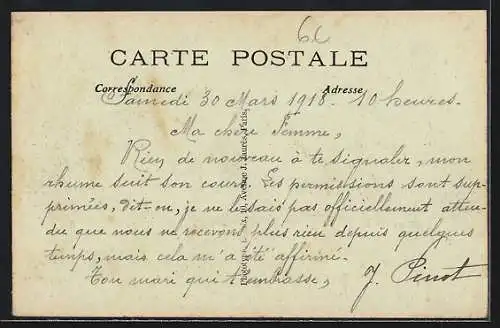 6c
CARTE POSTALE
Correspondance
Adresse
Samedi 30 Mars 1918. 10 heures.
Ma chère Femme,
Rien de nouveau à te signaler, mon
rhume suit son cours. Les permissions sont sup-
primées, dit-on, je ne le sais pas officiellement atten-
du que nous ne recevons plus rien depuis quelques
temps, mais cela m'a été affirmé.
Ton mari qui t'embrasse,
J. Pinot
Avenue J. Jaurès, Paris